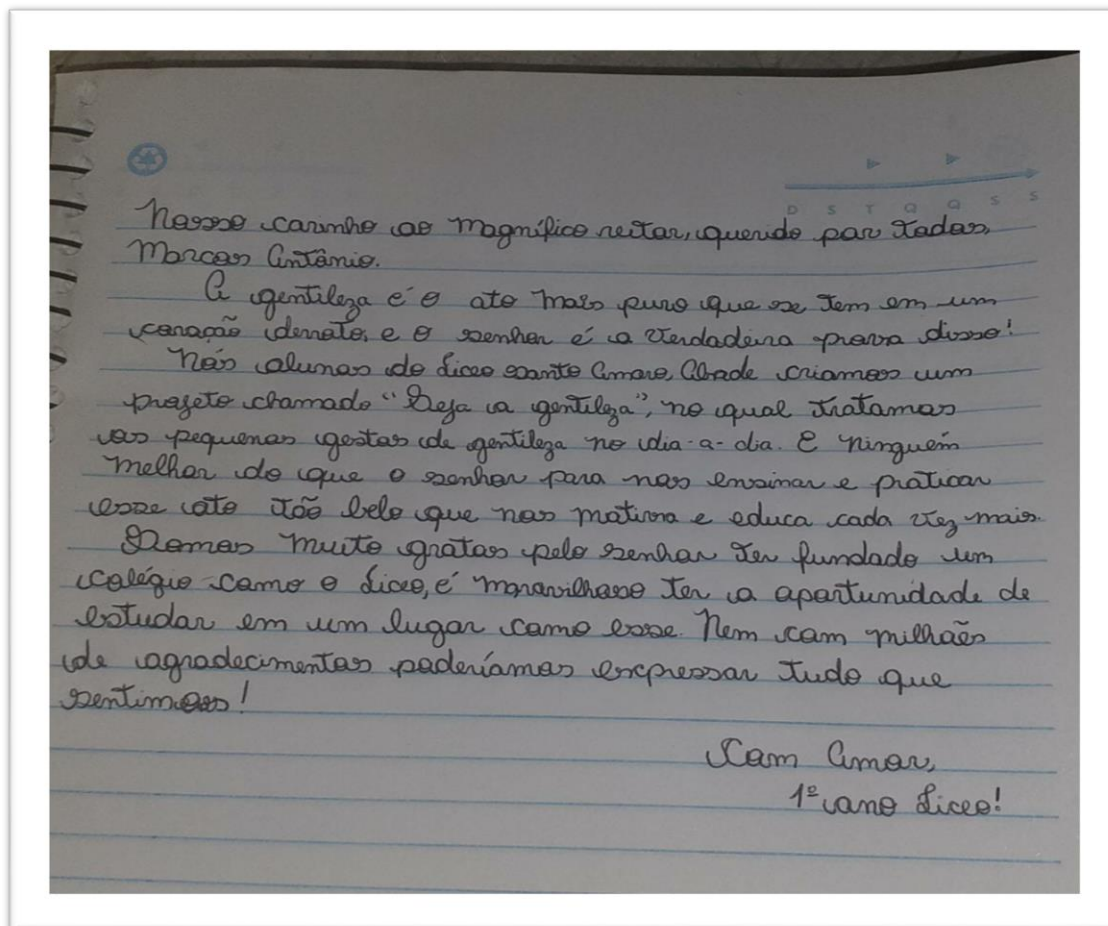 D S T Q Q S S
Nosso carinho ao magnífico reitor, querido por todos,
Marcos Antônio.
A gentileza é o ato mais puro que se tem em um
coração devoto, e o senhor é a verdadeira prova disso!
Nós alunos do Liceo santo Amaro, Abade criamos um
projeto chamado "Seja a gentileza", no qual tratamos
os pequenos gestos de gentileza no dia-a-dia. E ninguém
melhor do que o senhor para nos ensinar e praticar
esse ato tão belo que nos motiva e educa cada vez mais.
Somos muito gratos pelo senhor ter fundado um
colégio como o Liceo, é maravilhoso ter a oportunidade de
estudar em um lugar como esse. Nem com milhões
de agradecimentos poderíamos expressar tudo que
sentimos!
Com Amor,
1º ano Liceo!